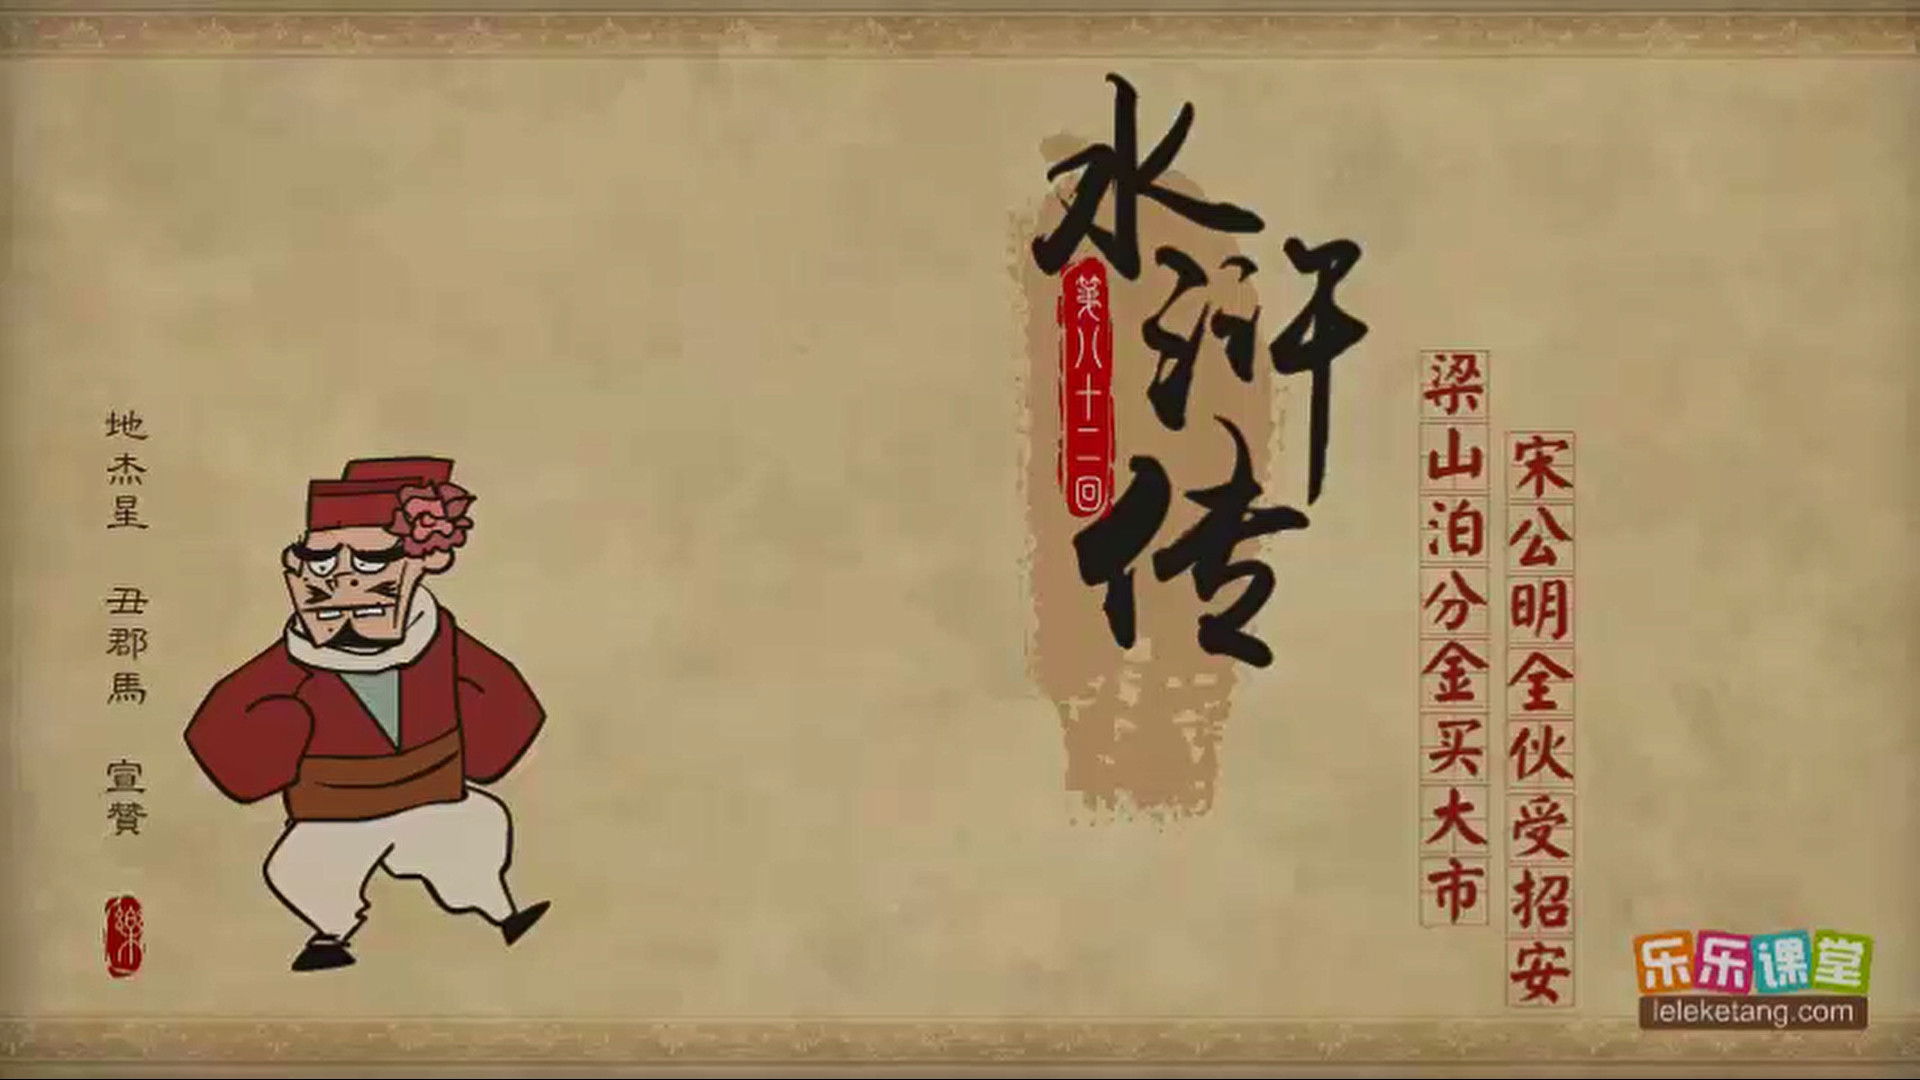 水浒传
第八十二回
梁山泊分金买大市
宋公明全伙受招安
地杰星 丑郡馬 宣贊
樂
乐乐课堂
leleketang.com